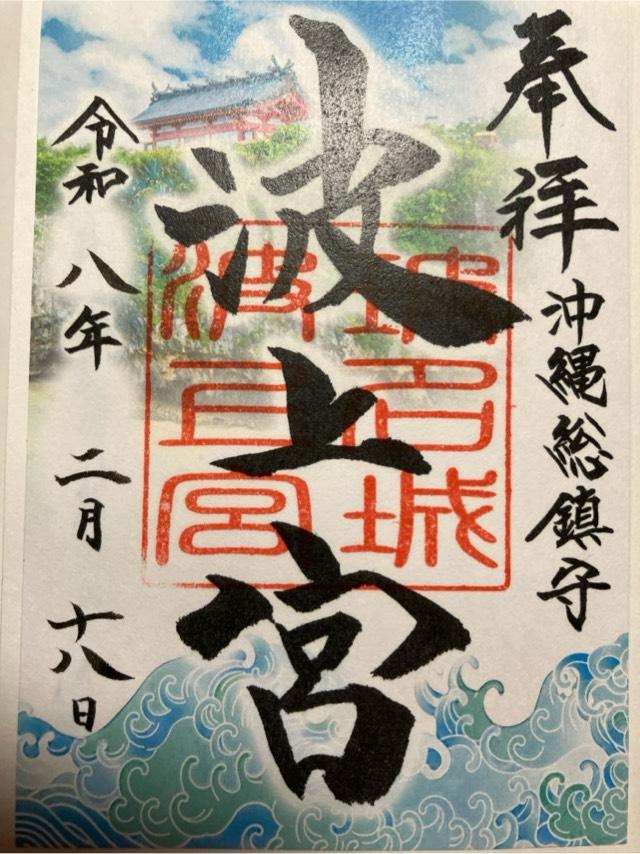 奉拝
沖縄総鎮守
波上宮
琉球
名
城
波
上
宮
令和八年二月十八日